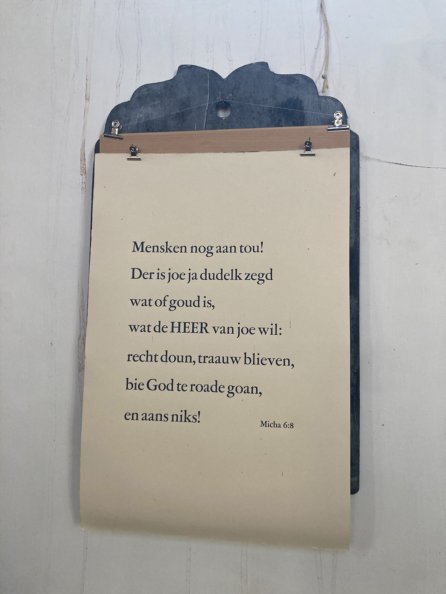 Mensken nog aan tou!
Der is joe ja dudelk zegd
wat of goud is,
wat de HEER van joe wil:
recht doun, traauw blieven,
bie God te roade goan,
en aans niks!
Micha 6:8